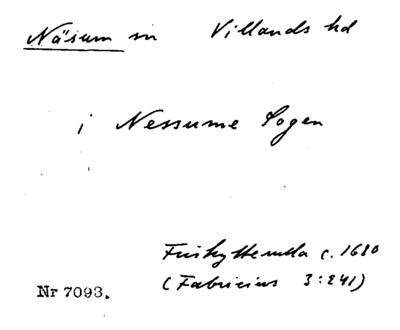 Näsum sn Villands hd
i Nessume Sogen
Friskytterulla c. 1680
(Fabricius 3:241)
Nr 7093.